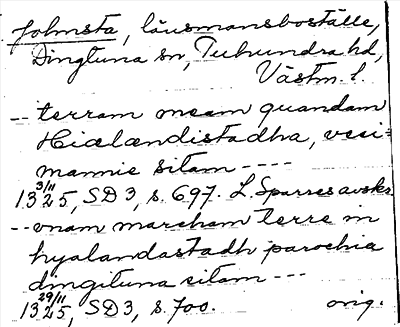 Johmsta, länsmansboställe,
Dingtuna sn, Tuhundra hd,
Västm. l.
-- terram meam quandam
Hiælandistadha, vesi-
mannie sitam ----
1325 3/11, SD 3, s. 697. L. Sparres avskr.
-- vnam marcham terre in
hyalandastadh parochia
dingituna sitam ---
1325 29/11, SD 3, s. 700. orig.